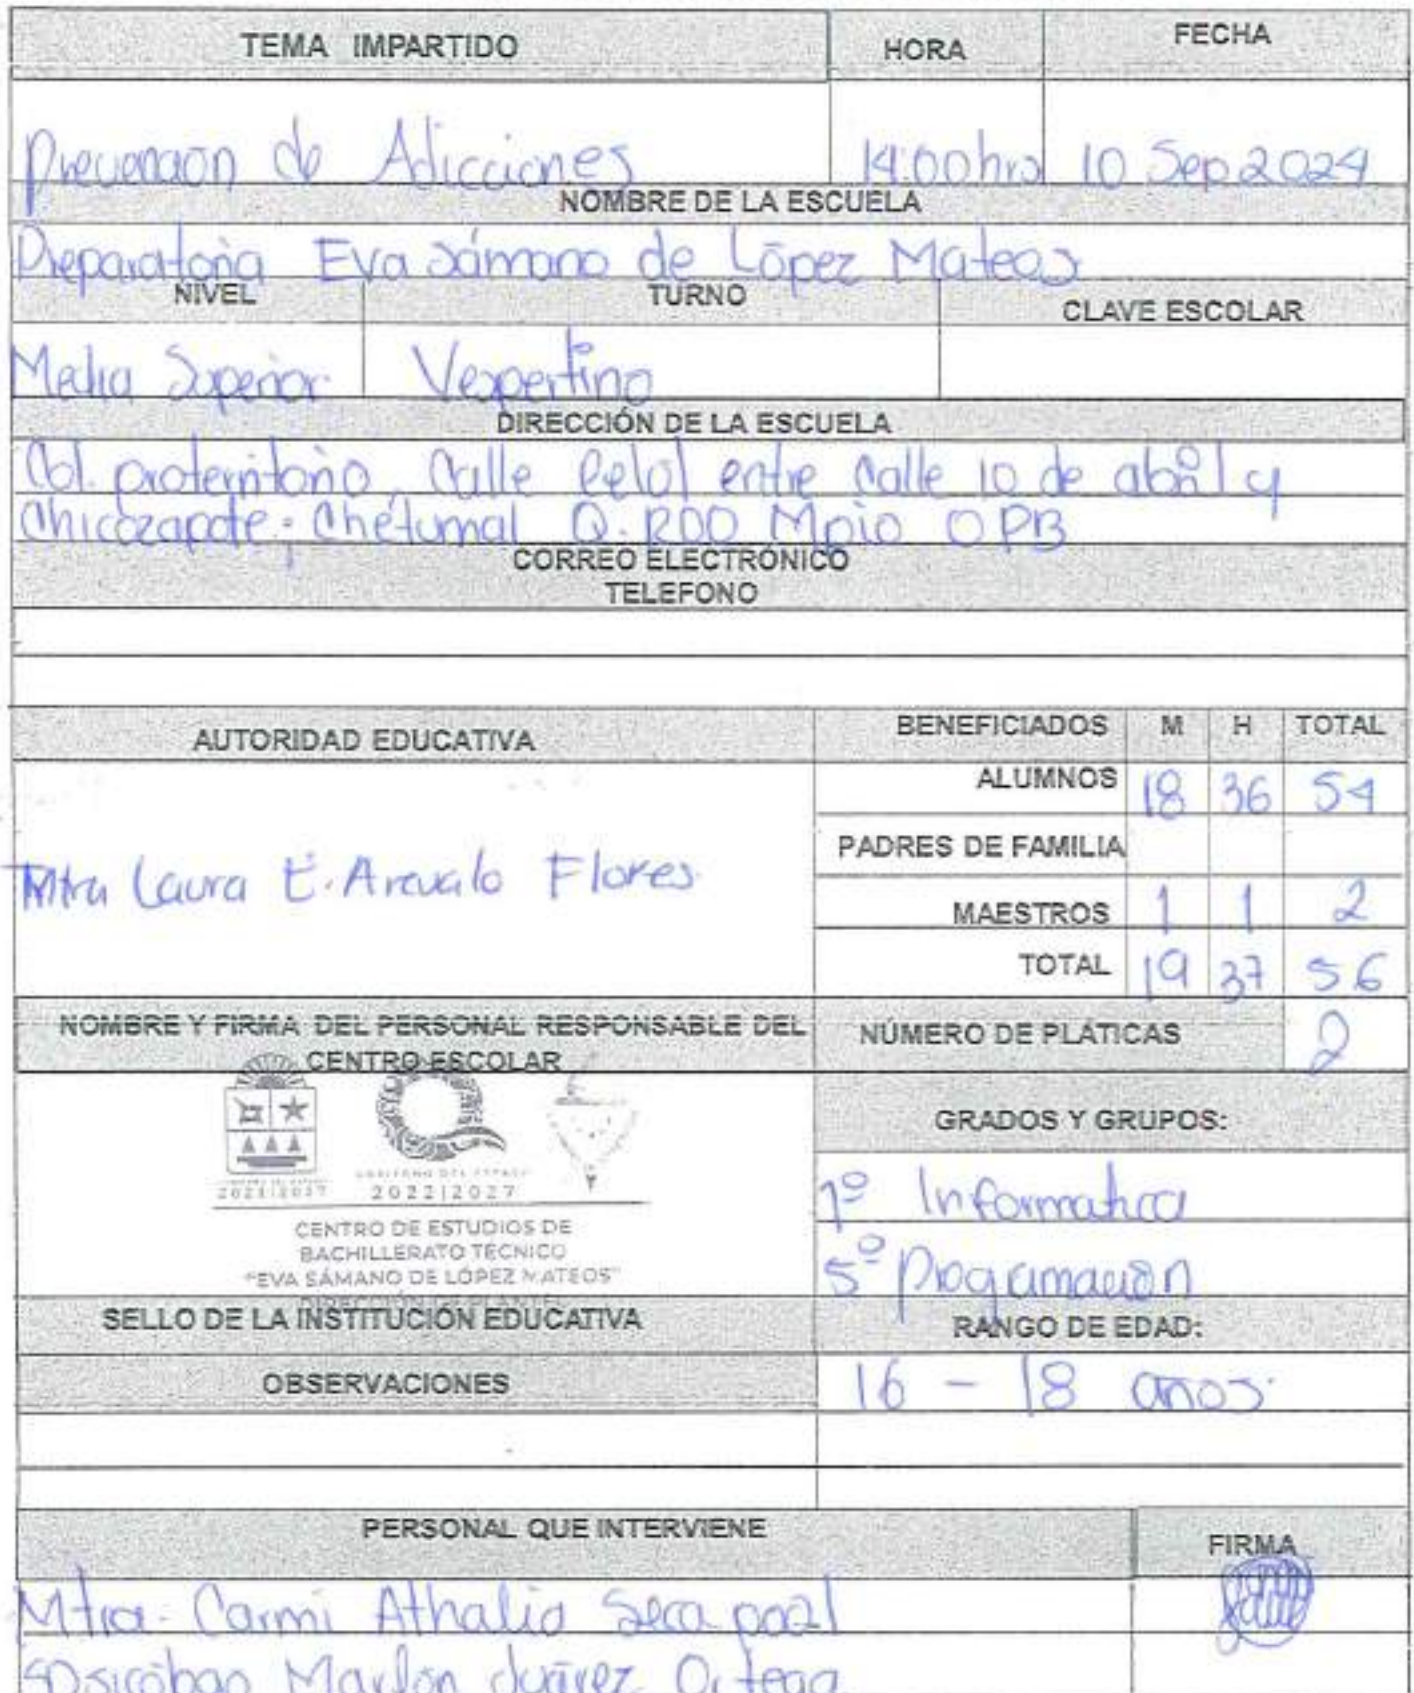 TEMA IMPARTIDO HORA FECHA
Prevención de Adicciones 14:00hrs 10 Sep 2024
NOMBRE DE LA ESCUELA
Preparatoria Eva Sámano de López Mateos
NIVEL TURNO CLAVE ESCOLAR
Media Superior Vespertino
DIRECCIÓN DE LA ESCUELA
Col. proterritorio, Calle Celul entre calle 10 de abril y
Chicozapote; Chetumal Q. ROO Mpio OPB
CORREO ELECTRÓNICO
TELEFONO
AUTORIDAD EDUCATIVA BENEFICIADOS M H TOTAL
ALUMNOS 18 36 54
PADRES DE FAMILIA
Mtra Laura E. Arevalo Flores
MAESTROS 1 1 2
TOTAL 19 37 56
NOMBRE Y FIRMA DEL PERSONAL RESPONSABLE DEL
CENTRO ESCOLAR
NÚMERO DE PLÁTICAS 2
GRADOS Y GRUPOS:
GOBIERNO DEL ESTADO
2022|2027 2022|2027
CENTRO DE ESTUDIOS DE
BACHILLERATO TÉCNICO
"EVA SÁMANO DE LÓPEZ MATEOS"
DIRECCIÓN DE PLANTEL
1º Informatica
5º Programación
SELLO DE LA INSTITUCIÓN EDUCATIVA RANGO DE EDAD:
OBSERVACIONES 16 - 18 años.
PERSONAL QUE INTERVIENE FIRMA
Mtra. Carmi Athalia Seca
Marlon Juárez Ortega